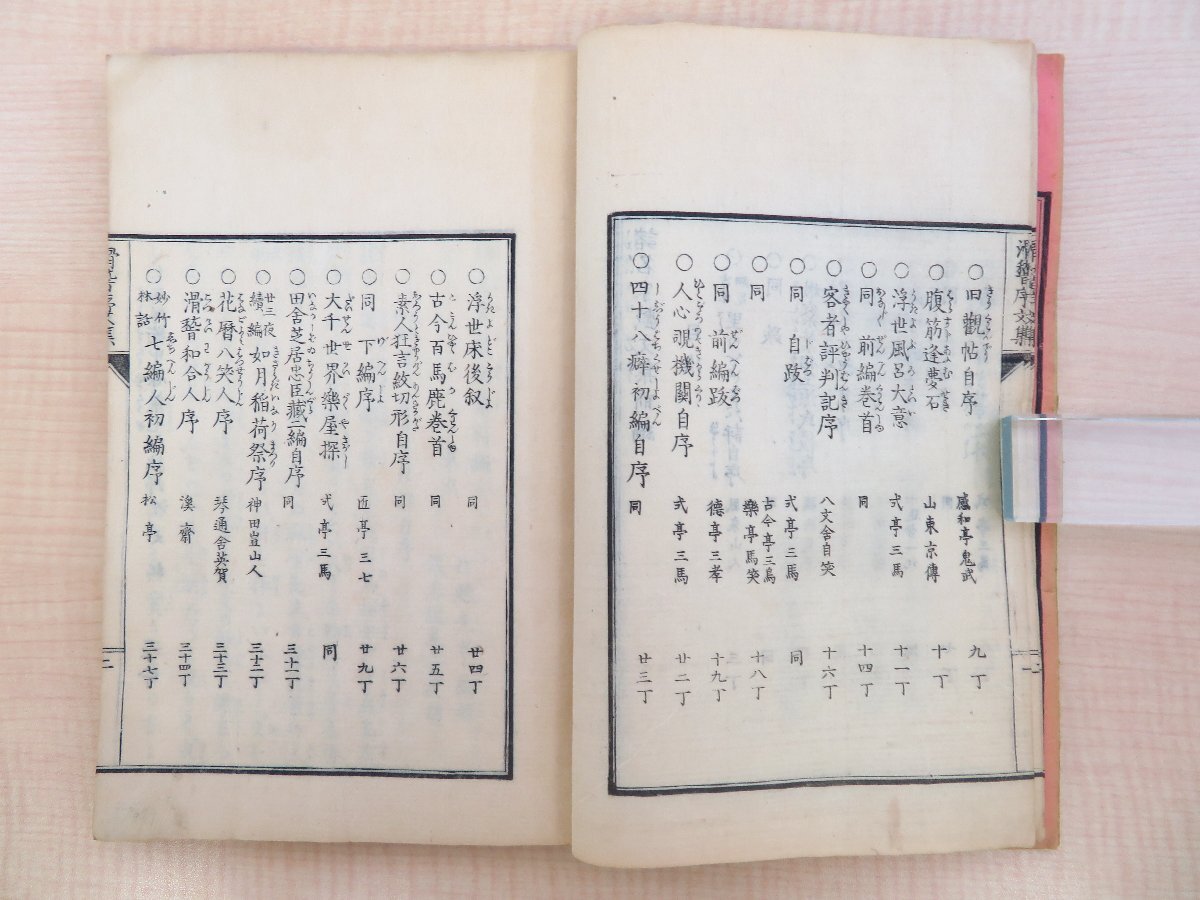 ○旧觀帖自序 感和亭鬼武 九丁
○腹筋逢夢石 山東京傳 十丁
○浮世風呂大意 弍亭三馬 十一丁
○同 前編巻首 同 十四丁
○客者評判記序 八文舎自笑 十六丁
○同 自跋 弍亭三馬 同
○同 古今亭三鳥 樂亭馬笑 十八丁
○同 前編跋 德亭三孝 十九丁
○人心覗機關自序 弍亭三馬 廿二丁
○四十八癖初編自序 同 廿三丁
○浮世床後叙 同 廿四丁
○古今百馬鹿巻首 同 廿五丁
○素人狂言紋切形自序 同 廿六丁
○同 下編序 匠亭三七 廿九丁
○大千世界樂屋探 弍亭三馬 同
○田舎芝居忠臣藏二編自序 同 三十一丁
○廿三夜續編如月稲荷祭序 神田豈山人 三十二丁
○花暦八笑人序 琴通舎英賀 三十三丁
○滑稽和合人序 溪齋 三十四丁
○妙竹林話七編人初編序 松亭 三十七丁